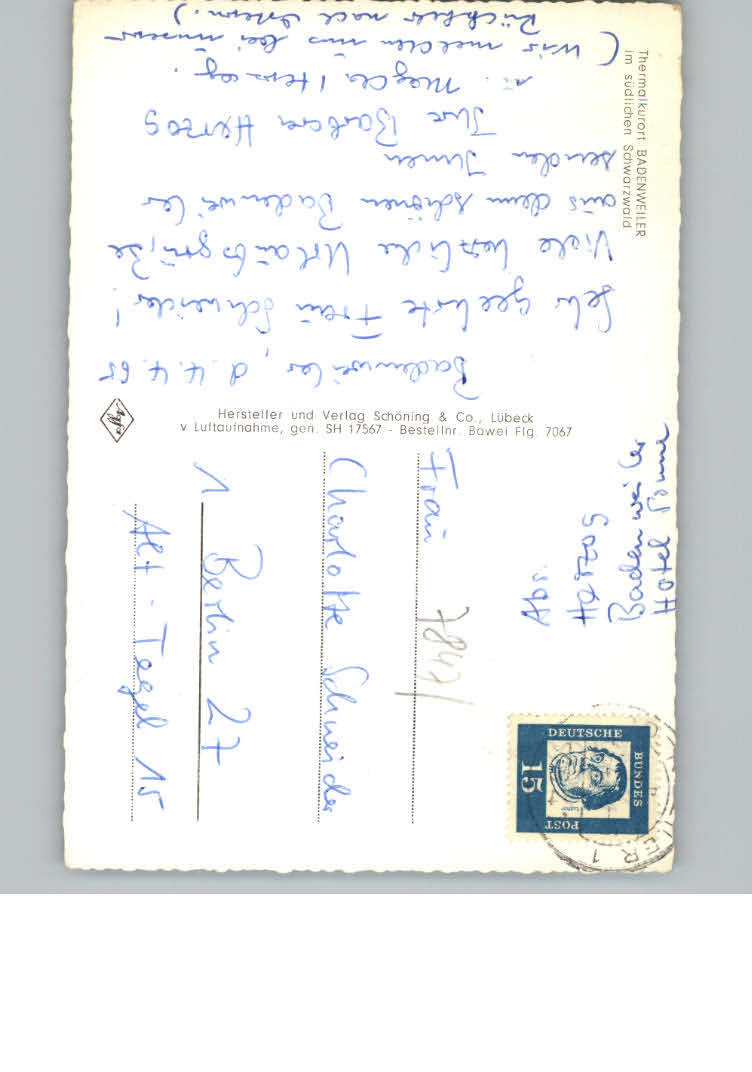 Thermalkurort BADENWEILER
im südlichen Schwarzwald
Badenweiler, d. 4.4.65
Sehr geehrte Frau Schneider!
Viele herzliche Urlaubsgrüße
aus dem schönen Badenweiler
senden Ihnen
Ihre Barbara Herzog
u. Magda Herzog.
(Wir melden uns bei unserer
Rückkehr nach Ostern.)
Agfa
Hersteller und Verlag Schöning & Co., Lübeck
v Luftaufnahme, gen. SH 17567 - Bestellnr. Bawei Flg. 7067
Abs.
Herzog
Badenweiler
Hotel Sonne
DEUTSCHE
BUNDES
POST
15
Luther
ILER 1
Frau
7847/
Charlotte Schneider
1 Berlin 27
Alt-Tegel 15